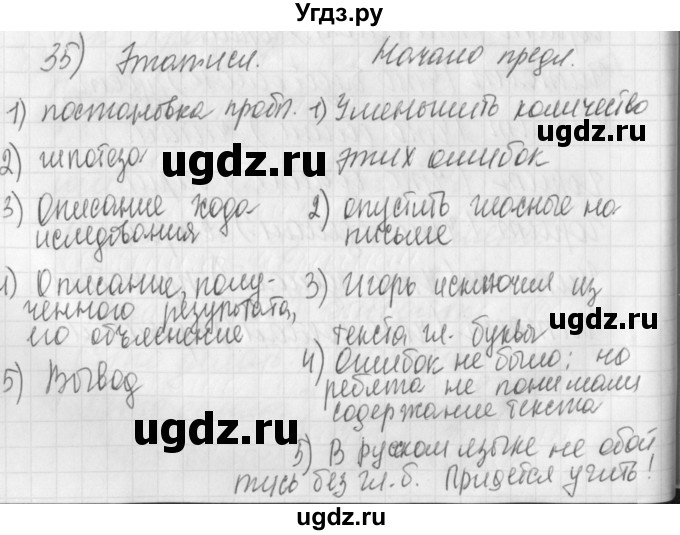 Угдз.ру
35) Этап исл. Начало предл.
1) постановка пробл. 1) Уменьшить количество
2) гипотеза этих ошибок
ugdz.ru
3) Описание хода 2) опустить гласные на
исследования письме
ugdz.ru
4) Описание полу- 3) Игорь исключил из
ченного результата,
его объяснение текста гл. буквы
ugdz.ru
4) Ошибок не было; но
5) Вывод ребята не понимали
ugdz.ru
содержание текста
5) В русском языке не обой
тись без гл. б. Придётся учить!
ugdz.ru